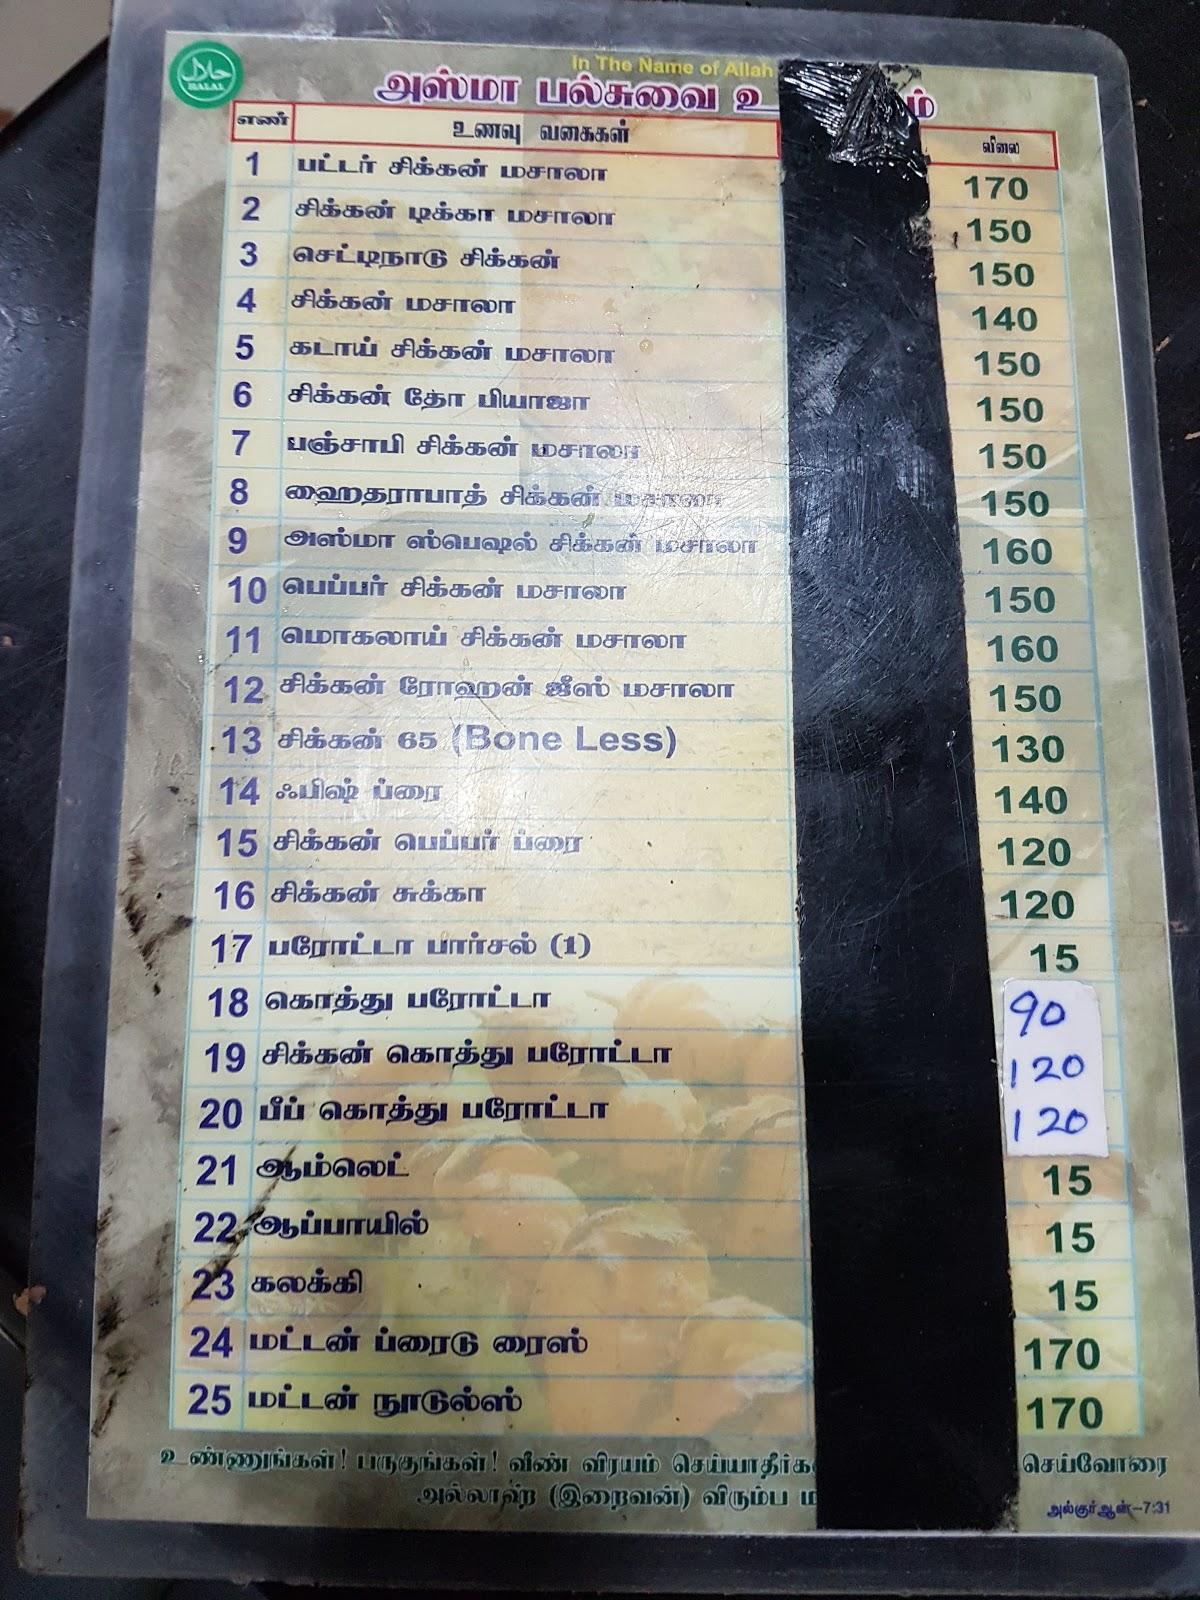 In The Name of Allah
حلال
HALAL
அஸ்மா பல்சுவை
எண் உணவு வகைகள் விலை
1 பட்டர் சிக்கன் மசாலா 170
2 சிக்கன் டிக்கா மசாலா 150
3 செட்டிநாடு சிக்கன் 150
4 சிக்கன் மசாலா 140
5 கடாய் சிக்கன் மசாலா 150
6 சிக்கன் தோ பியாஜா 150
7 பஞ்சாபி சிக்கன் மசாலா 150
8 ஹைதராபாத் சிக்கன் மசாலா 150
9 அஸ்மா ஸ்பெஷல் சிக்கன் மசாலா 160
10 பெப்பர் சிக்கன் மசாலா 150
11 மொகலாய் சிக்கன் மசாலா 160
12 சிக்கன் ரோஹன் ஜீஸ் மசாலா 150
13 சிக்கன் 65 (Bone Less) 130
14 ஃபிஷ் ப்ரை 140
15 சிக்கன் பெப்பர் ப்ரை 120
16 சிக்கன் சுக்கா 120
17 பரோட்டா பார்சல் (1) 15
18 கொத்து பரோட்டா 90
19 சிக்கன் கொத்து பரோட்டா 120
20 பீப் கொத்து பரோட்டா 120
21 ஆம்லெட் 15
22 ஆப்பாயில் 15
23 கலக்கி 15
24 மட்டன் ப்ரைடு ரைஸ் 170
25 மட்டன் நூடுல்ஸ் 170
உண்ணுங்கள்! பருகுங்கள்! வீண் விரயம் செய்யாதீர்க செய்வோரை
அல்லாஹ் (இறைவன்) விரும்ப
அல்குர்ஆன்-7:31